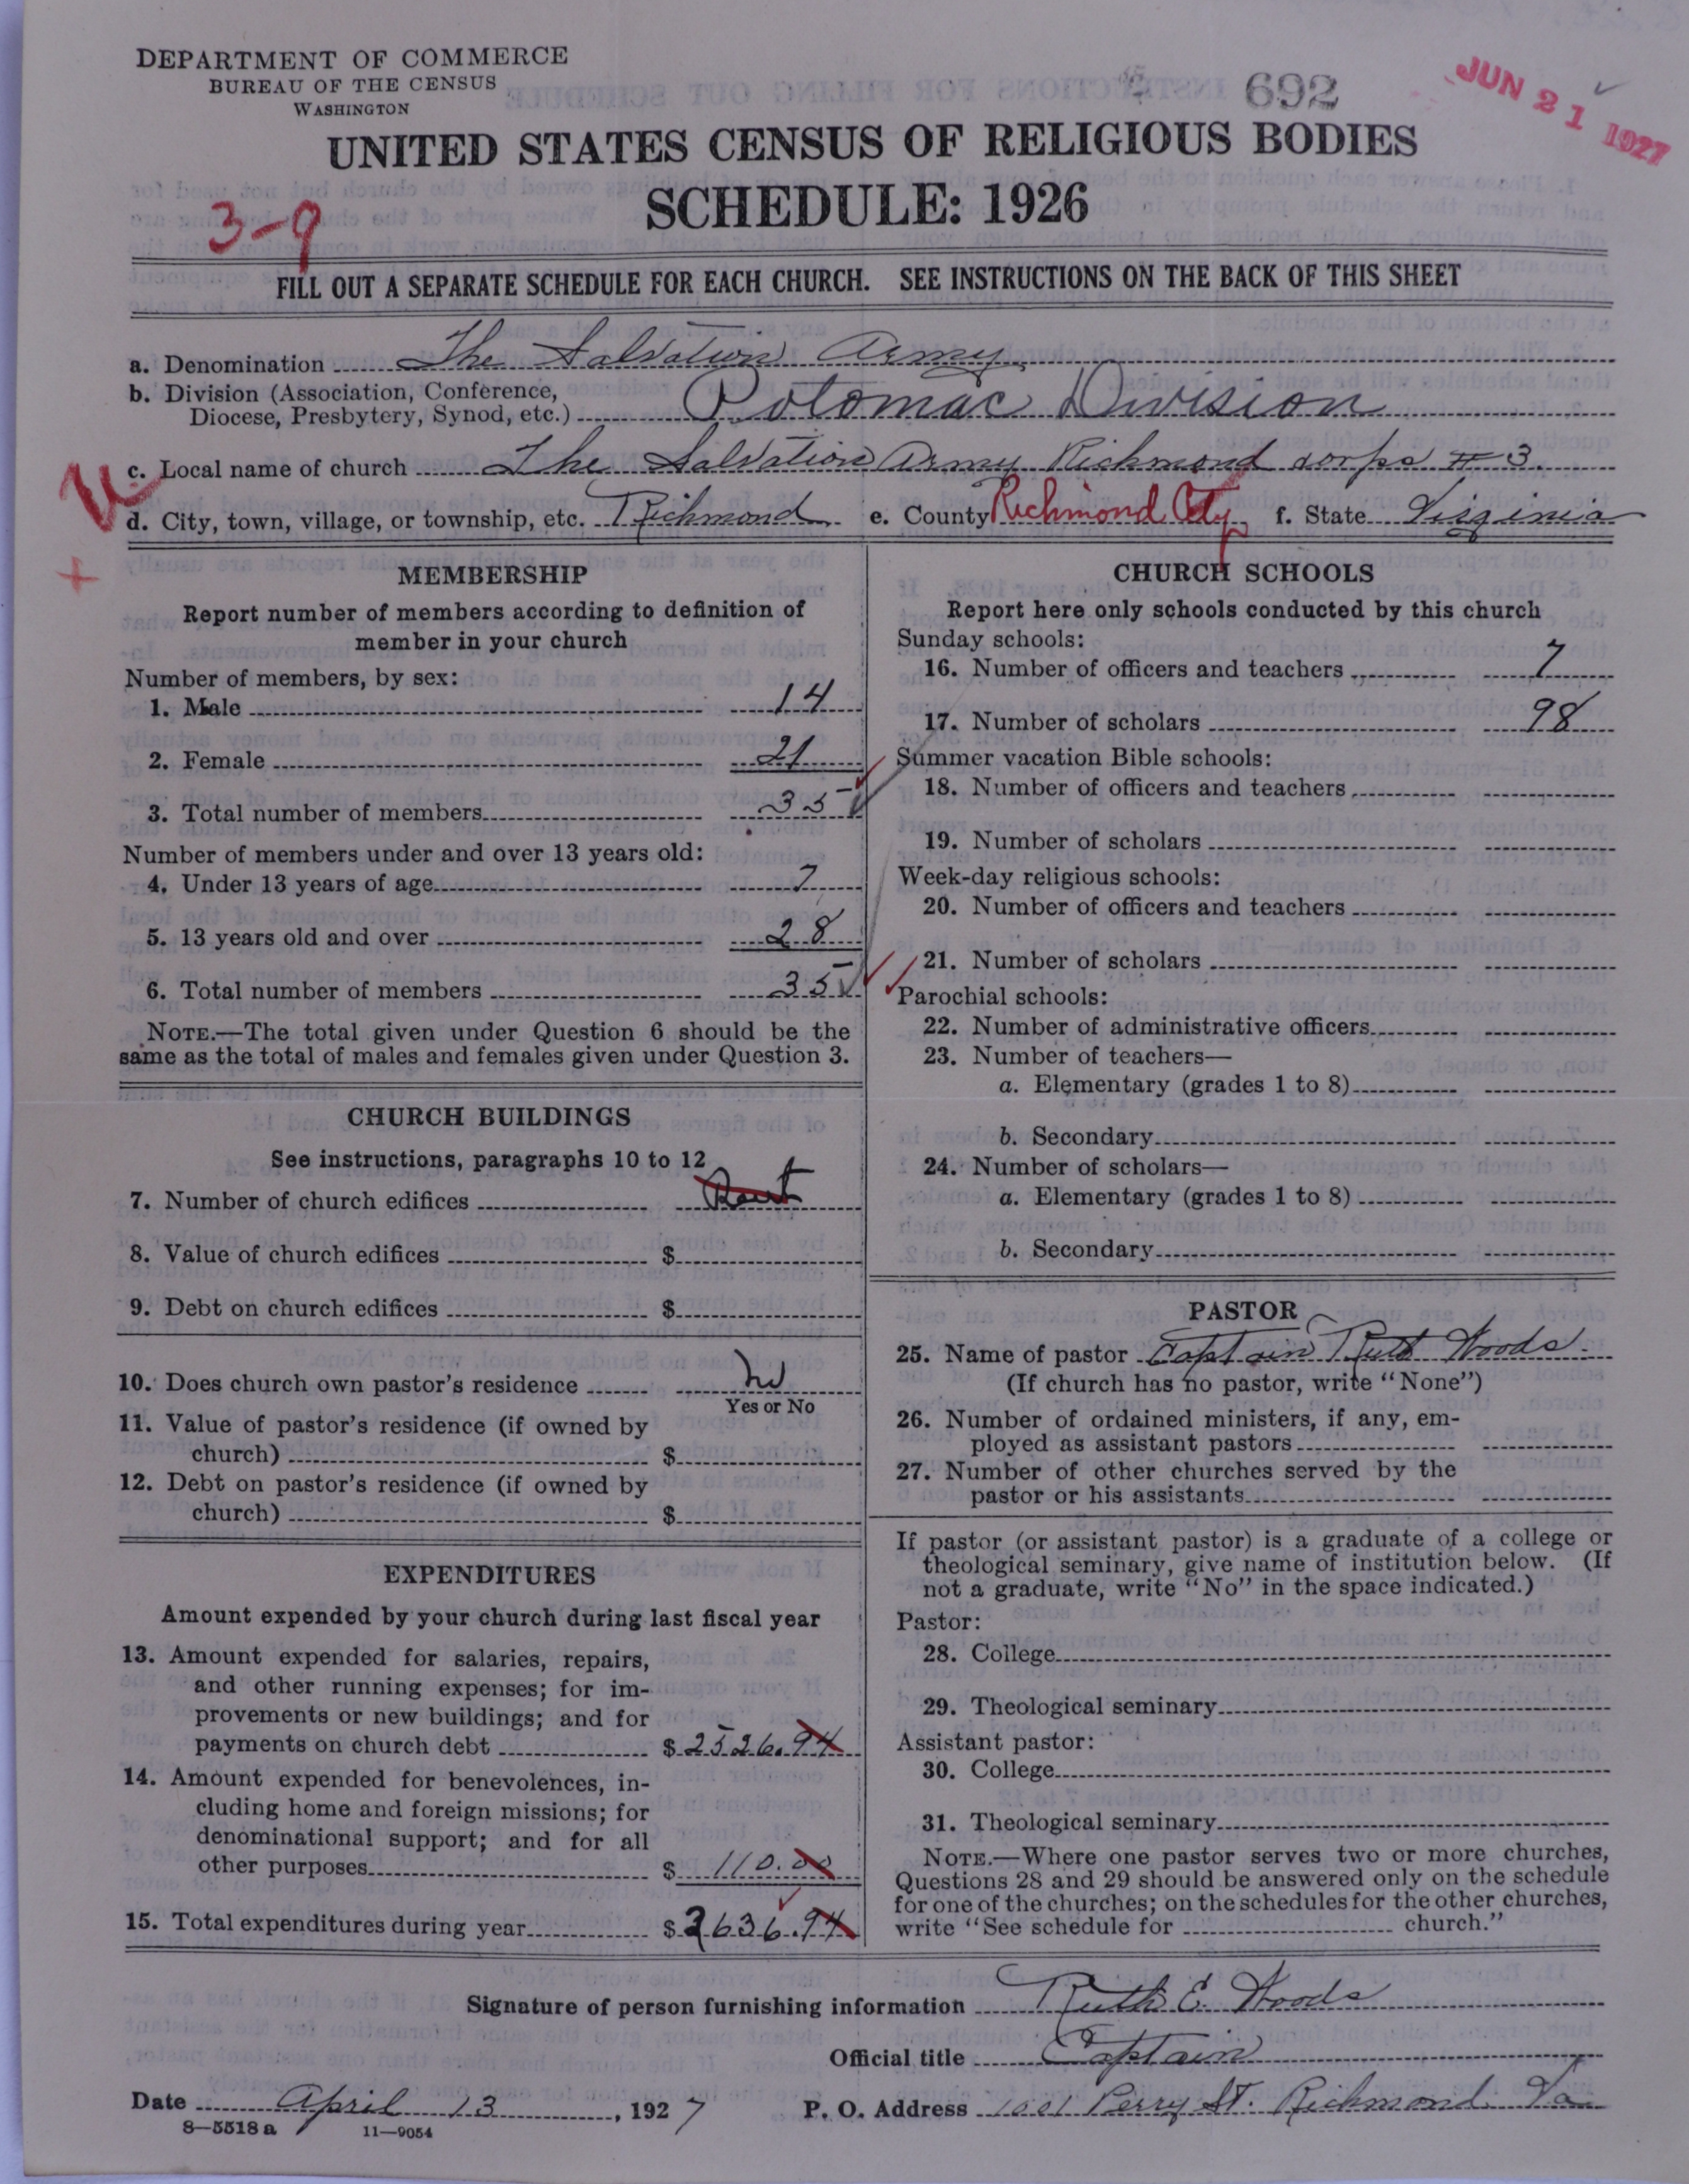 DEPARTMENT OF COMMERCE
BUREAU OF THE CENSUS
WASHINGTON
692
JUN 21 1927
UNITED STATES CENSUS OF RELIGIOUS BODIES
SCHEDULE: 1926
3-9
FILL OUT A SEPARATE SCHEDULE FOR EACH CHURCH. SEE INSTRUCTIONS ON THE BACK OF THIS SHEET
a. Denomination The Salvation Army
b. Division (Association, Conference,
Diocese, Presbytery, Synod, etc.) Potomac Division
c. Local name of church The Salvation Army Richmond corps # 3.
d. City, town, village, or township, etc. Richmond e. County Richmond City f. State Virginia
MEMBERSHIP
Report number of members according to definition of
member in your church
Number of members, by sex:
1. Male 14
2. Female 21
3. Total number of members 35
Number of members under and over 13 years old:
4. Under 13 years of age 7
5. 13 years old and over 28
6. Total number of members 35
NOTE.—The total given under Question 6 should be the
same as the total of males and females given under Question 3.
CHURCH BUILDINGS
See instructions, paragraphs 10 to 12
7. Number of church edifices Rent
8. Value of church edifices $
9. Debt on church edifices $
10. Does church own pastor's residence No
Yes or No
11. Value of pastor's residence (if owned by
church) $
12. Debt on pastor's residence (if owned by
church) $
EXPENDITURES
Amount expended by your church during last fiscal year
13. Amount expended for salaries, repairs,
and other running expenses; for im-
provements or new buildings; and for
payments on church debt $ 2526.94
14. Amount expended for benevolences, in-
cluding home and foreign missions; for
denominational support; and for all
other purposes $ 110.00
15. Total expenditures during year $ 2636.94
CHURCH SCHOOLS
Report here only schools conducted by this church
Sunday schools:
16. Number of officers and teachers 7
17. Number of scholars 98
Summer vacation Bible schools:
18. Number of officers and teachers
19. Number of scholars
Week-day religious schools:
20. Number of officers and teachers
21. Number of scholars
Parochial schools:
22. Number of administrative officers
23. Number of teachers—
a. Elementary (grades 1 to 8)
b. Secondary
24. Number of scholars—
a. Elementary (grades 1 to 8)
b. Secondary
PASTOR
25. Name of pastor Captain Ruth Woods.
(If church has no pastor, write "None")
26. Number of ordained ministers, if any, em-
ployed as assistant pastors
27. Number of other churches served by the
pastor or his assistants
If pastor (or assistant pastor) is a graduate of a college or
theological seminary, give name of institution below. (If
not a graduate, write "No" in the space indicated.)
Pastor:
28. College
29. Theological seminary
Assistant pastor:
30. College
31. Theological seminary
NOTE.—Where one pastor serves two or more churches,
Questions 28 and 29 should be answered only on the schedule
for one of the churches; on the schedules for the other churches,
write "See schedule for church."
Signature of person furnishing information Ruth E. Woods
Official title Captain
Date April 13, 1927 P. O. Address 1001 Perry St. Richmond Va
8—5518 a 11—9054